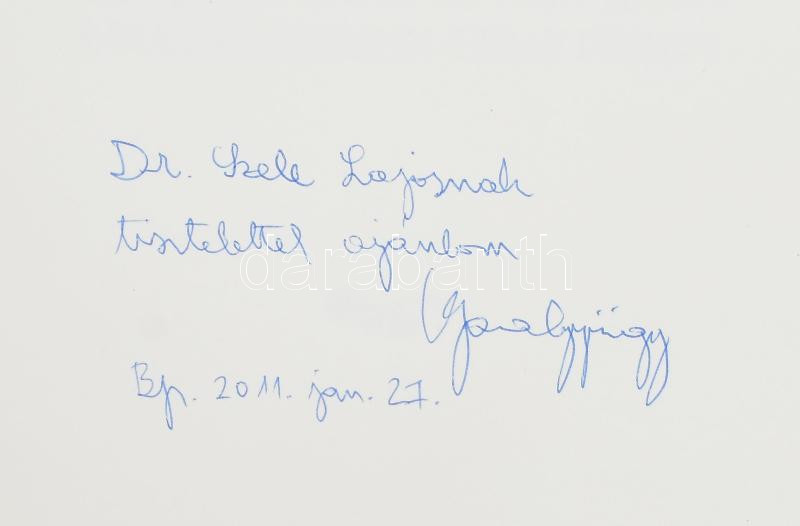 Dr. Szele Lajosnak
tisztelettel ajánlom
darabanth
Bp. 2011. jan. 27.